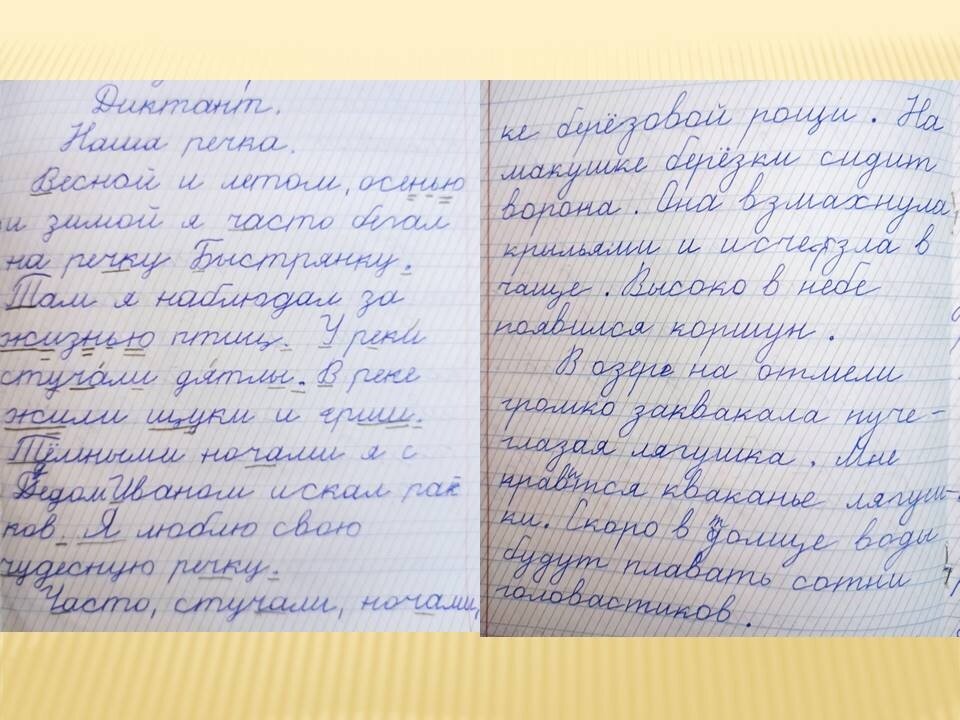 Диктант.
Наша речка.
Весной и летом, осенью
и зимой я часто бегал
на речку Быстрянку.
Там я наблюдал за
жизнью птиц. У реки
стучали дятлы. В реке
жили щуки и ерши.
Тёмными ночами я с
Дедом Иваном искал ра-
ков. Я люблю свою
чудесную речку.
Часто, стучали, ночами,
ке берёзовой рощи. На
макушке берёзки сидит
ворона. Она взмахнула
крыльями и исчезла в
чаще. Высоко в небе
появился коршун.
В озере на отмели
громко заквакала пуче-
глазая лягушка. Мне
нравится кваканье лягуш-
ки. Скоро в толще воды
будут плавать сотни
головастиков.